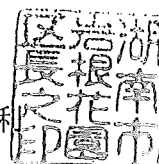 湖南市
岩根花園
区長之印
利